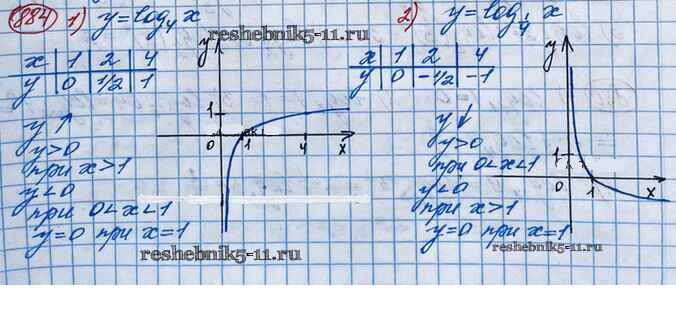 884 1) y = log₄ x
x | 1 | 2 | 4
y | 0 | 1/2 | 1
y ↑
y > 0
при x > 1
y < 0
при 0 < x < 1
y = 0 при x = 1
y
1
0 1 4 x
reshebnik5-11.ru
2) y = log_{1/4} x
x | 1 | 2 | 4
y | 0 | -1/2 | -1
y ↓
y > 0
при 0 < x < 1
y < 0
при x > 1
y = 0 при x = 1
y
1
0 1 x
reshebnik5-11.ru